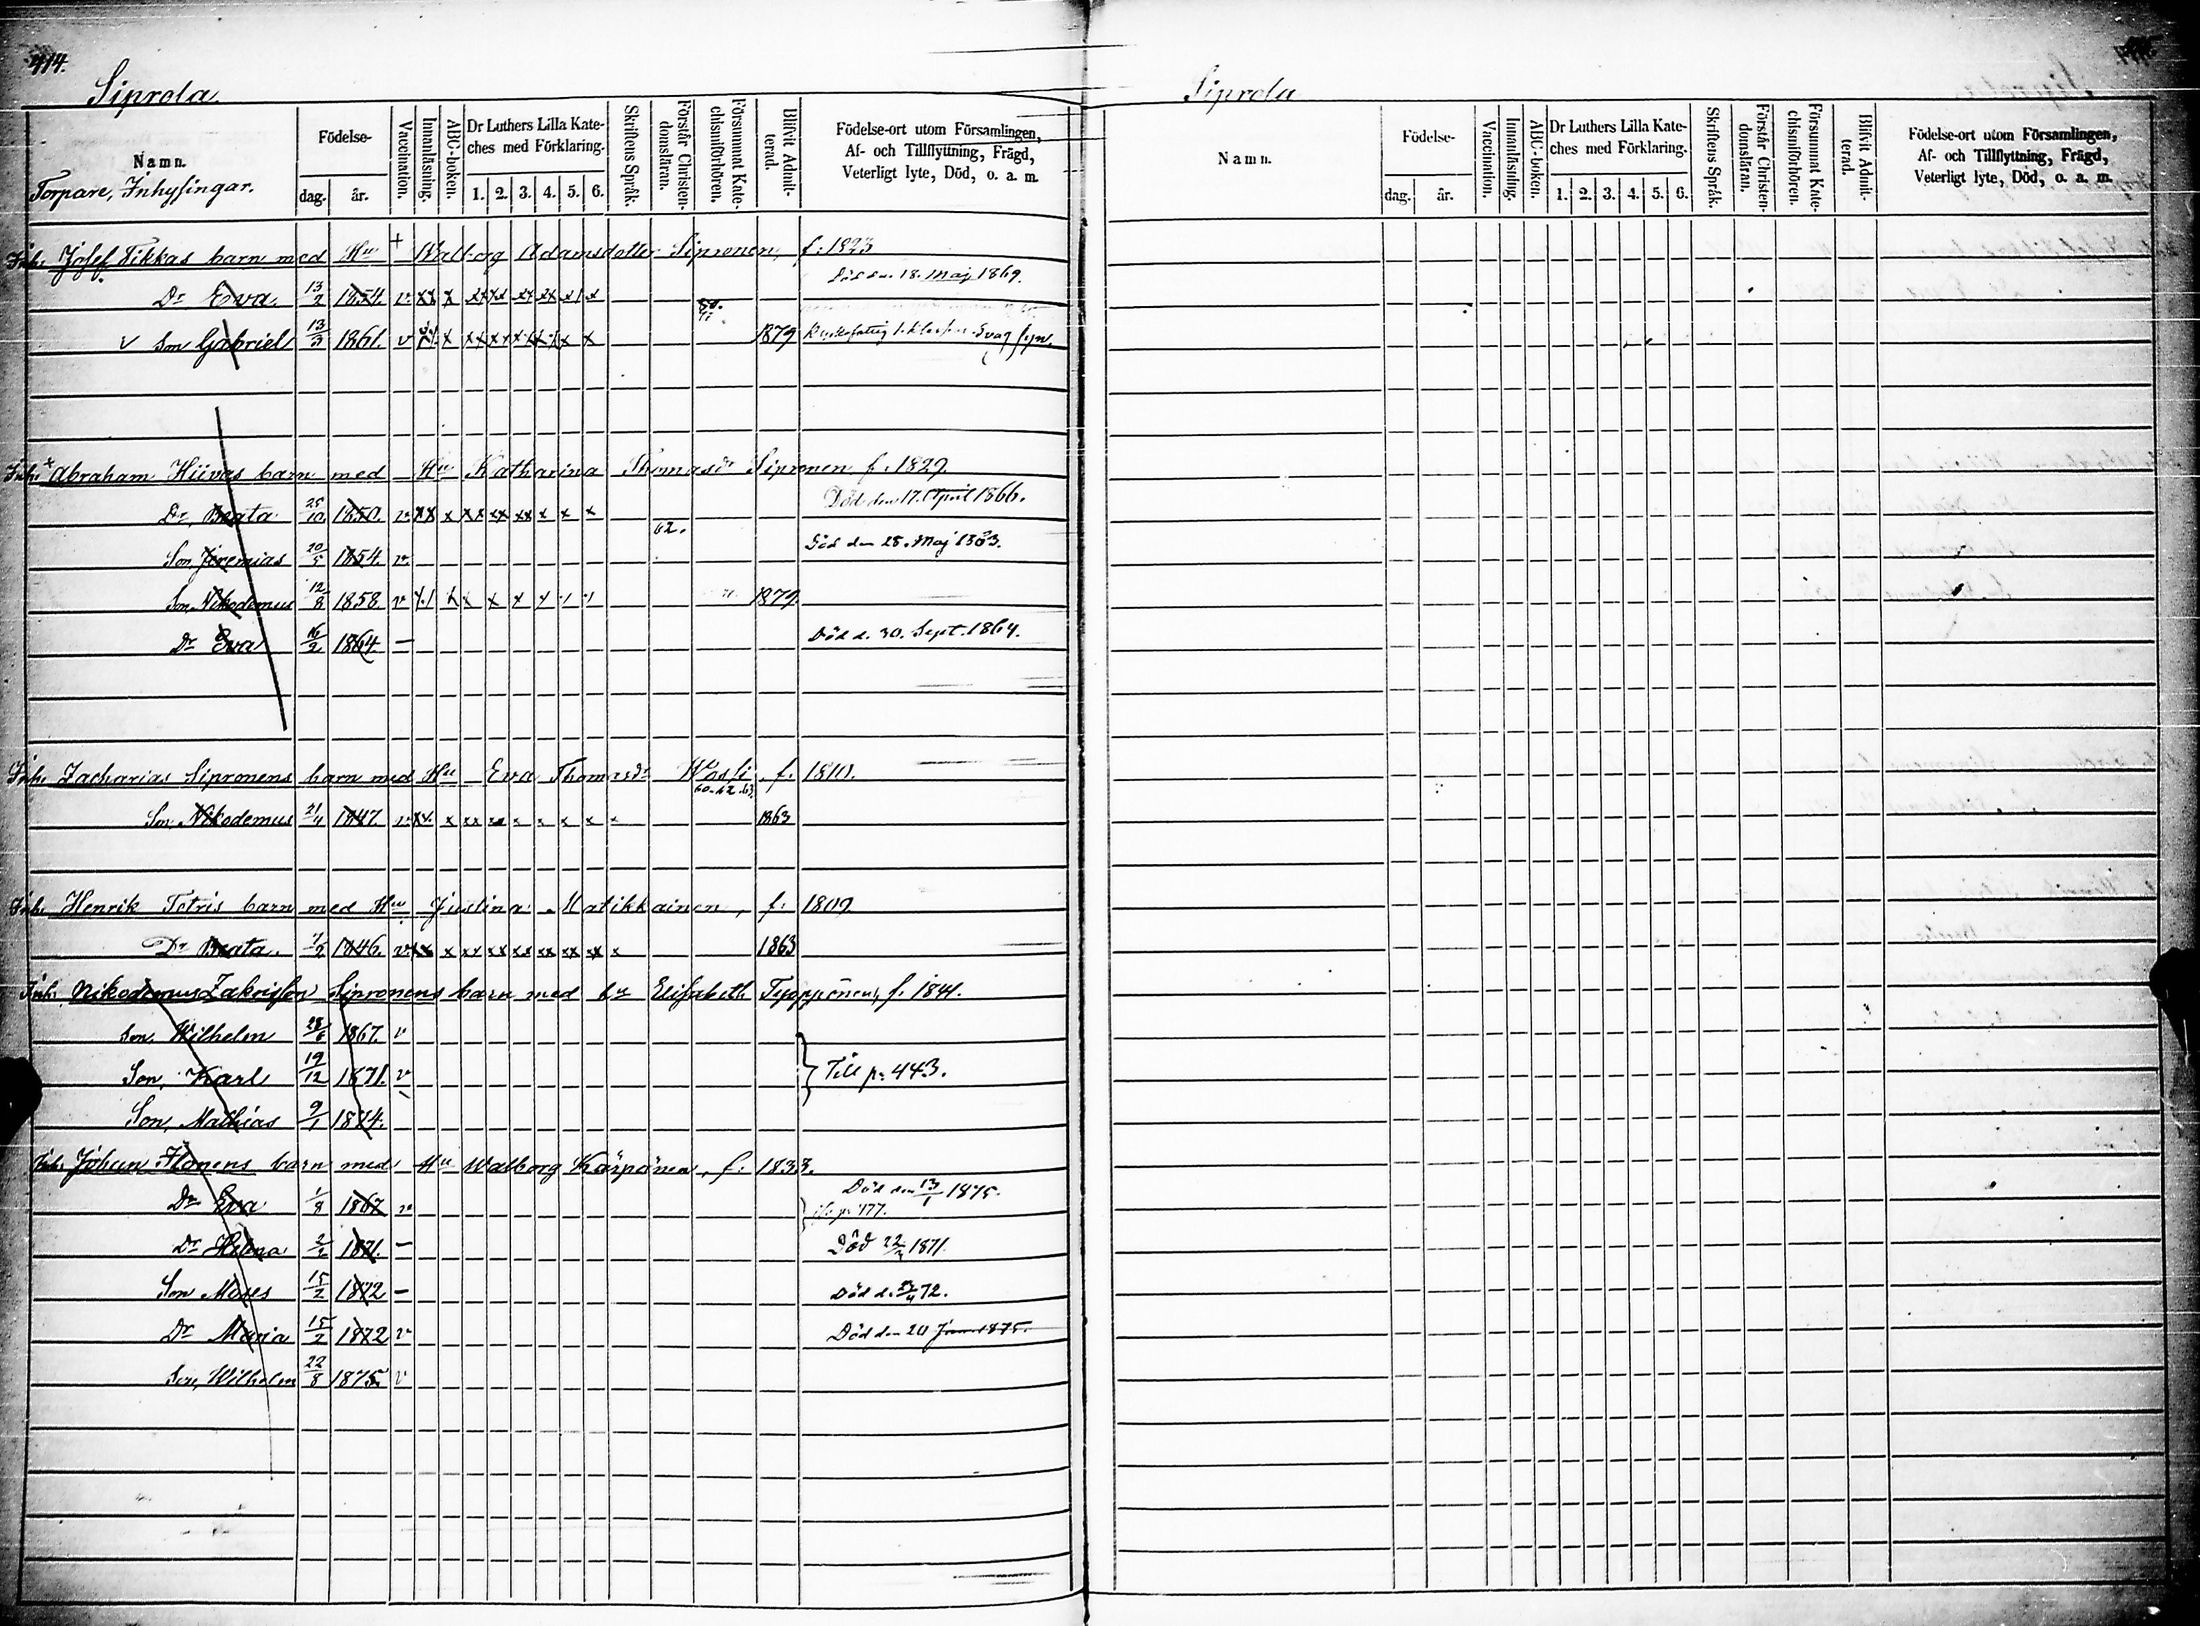 414.
Siprola.
Namn.
Torpare, Inhysingar.
Födelse-
dag. år.
Vaccination.
Innanläsning.
ABC-boken.
Dr Luthers Lilla Kate-
ches med Förklaring.
1. 2. 3. 4. 5. 6.
Skriftens Språk.
Förstår Christen-
domsläran.
Försummat Kate-
chismiförhören.
Blifvit Admit-
terad.
Födelse-ort utom Församlingen,
Af- och Tillflyttning, Frägd,
Veterligt lyte, Död, o. a. m.
Inh. Josef Tikkas barn med Hu + Walborg Adamsdotter Sipronen, f. 1823
Dr Eva 13/2 1854. v xx x xx xx xx xx x x Död den 18. Maj 1869.
v Son Gabriel 13/3 1861. v x x 1879 Svag syn.
Inh. x Abraham Hiivas barn med Hu Katharina Thomasdr Sipronen f. 1829.
Dr, Beata 25/10 1850. v xx x xx xx xx x x x Död den 17. April 1866.
Son Jeremias 20/5 1854. v 62. Död den 28. Maj 1863.
Son Nikodemus 12/8 1858 v x x x x x 1879.
Dr Eva 16/2 1864 — Död d. 30. Sept. 1864.
Inh. Zacharias Sipronens barn med Hu Eva Thomasdr f. 1810.
60-62.63.
Son Nikodemus 21/4 1847 v xx x xx xx x x x x x 1863
Inh. Henrik Tetris barn med Hu Justina Matikkainen, f. 1809
Dr Beata. 7/2 1846. v xx x xx xx xx xx xx xx x 1863
Inh. Nikodemus Zakrisson Sipronens barn med hu Elisabeth Typpönen, f. 1841.
Son, Wilhelm 28/6 1867. v
Son, Karl 19/12 1871. v Till p. 443.
Son, Mathias 9/1 1874.
Inh. Johan Ilonens barn med Hu Walborg Karponen, f. 1833.
Dr Eva 1/8 1867 v Död den 13/1 1875.
p. 477.
Dr Helena 2/2 1871. — Död 22/3 1871.
Son Moses 15/2 1872 — Död d. 72.
Dr Maria 15/2 1872 v Död den 20 1875.
Son, Wilhelm 22/8 1875 v
Siprola
Namn.
Födelse-
dag. år.
Vaccination.
Innanläsning.
ABC-boken.
Dr Luthers Lilla Kate-
ches med Förklaring.
1. 2. 3. 4. 5. 6.
Skriftens Språk.
Förstår Christen-
domsläran.
Försummat Kate-
chismiförhören.
Blifvit Admit-
terad.
Födelse-ort utom Församlingen,
Af- och Tillflyttning, Frägd,
Veterligt lyte, Död, o. a. m.